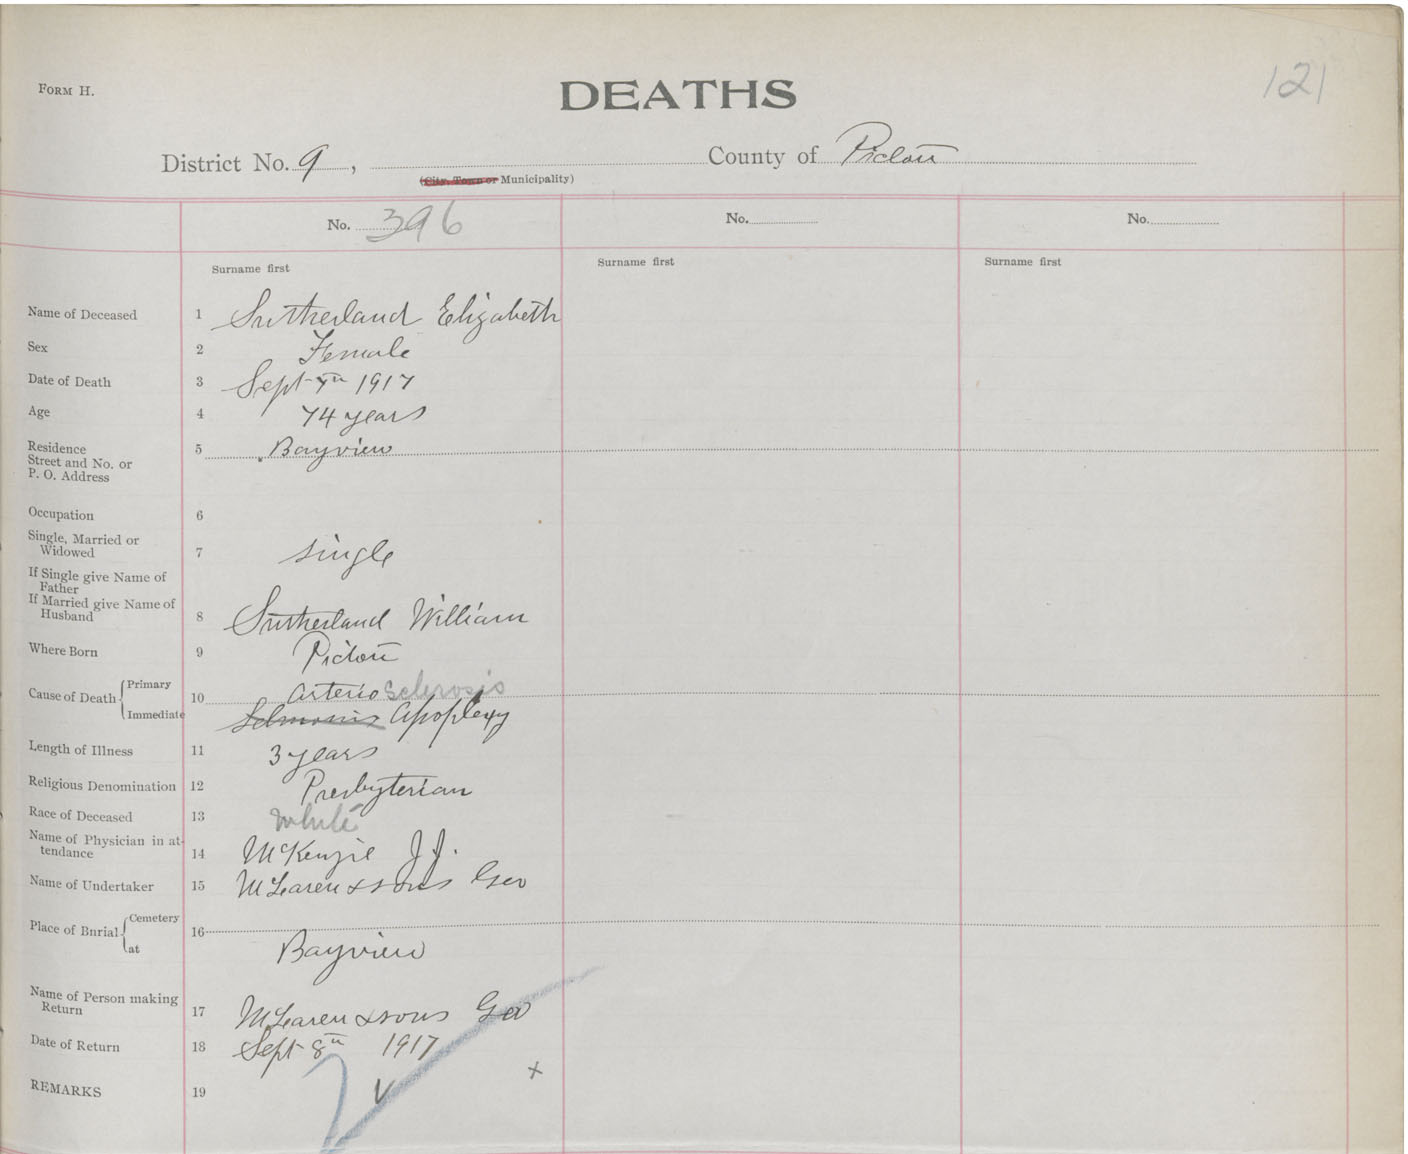 121
FORM H.
DEATHS
District No. 9, County of Pictou
(City, Town or Municipality)
No. 396 No. No.
Surname first Surname first Surname first
Name of Deceased 1 Sutherland Elizabeth
Sex 2 Female
Date of Death 3 Sept 7th 1917
Age 4 74 years
Residence 5 Bayview
Street and No. or
P. O. Address
Occupation 6
Single, Married or
Widowed 7 single
If Single give Name of
Father
If Married give Name of
Husband 8 Sutherland William
Where Born 9 Pictou
Cause of Death { Primary 10 Arterio Sclerosis
Immediate Apoplexy
Length of Illness 11 3 years
Religious Denomination 12 Presbyterian
Race of Deceased 13 White
Name of Physician in at-
tendance 14 McKenzie J. J.
Name of Undertaker 15 McLaren & sons Geo
Place of Burial { Cemetery 16
at Bayview
Name of Person making
Return 17 McLaren & sons Geo
Date of Return 18 Sept 8th 1917
REMARKS 19